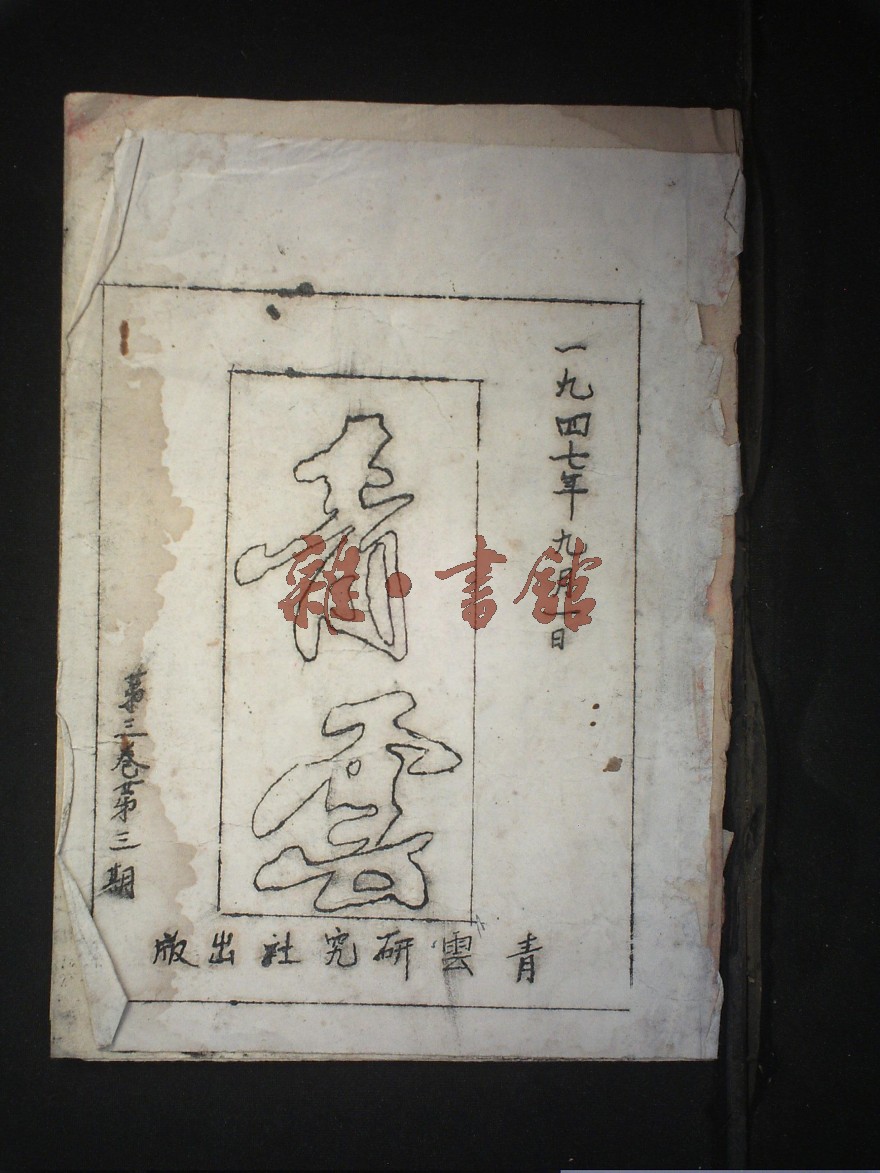 一九四七年九月一日
青雲
第三卷第三期
青雲研究社出版
雜·書館